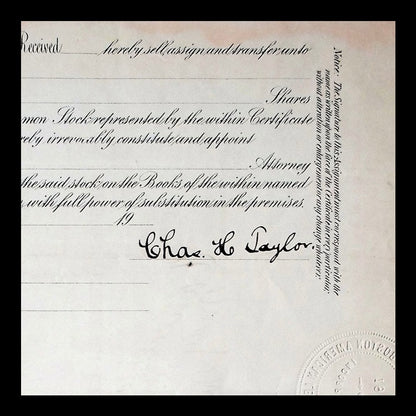 Received hereby sell, assign and transfer unto
Shares
Stock represented by the within Certificate
irrevocably constitute and appoint
Attorney
the said stock on the Books of the within named
with full power of substitution in the premises.
19
Chas. H Taylor.
Notice: The Signature to this Assignment must correspond with the
name as written upon the face of the Certificate in every particular,
without alteration or enlargement or any change whatever.
BOSTON AMERICAN